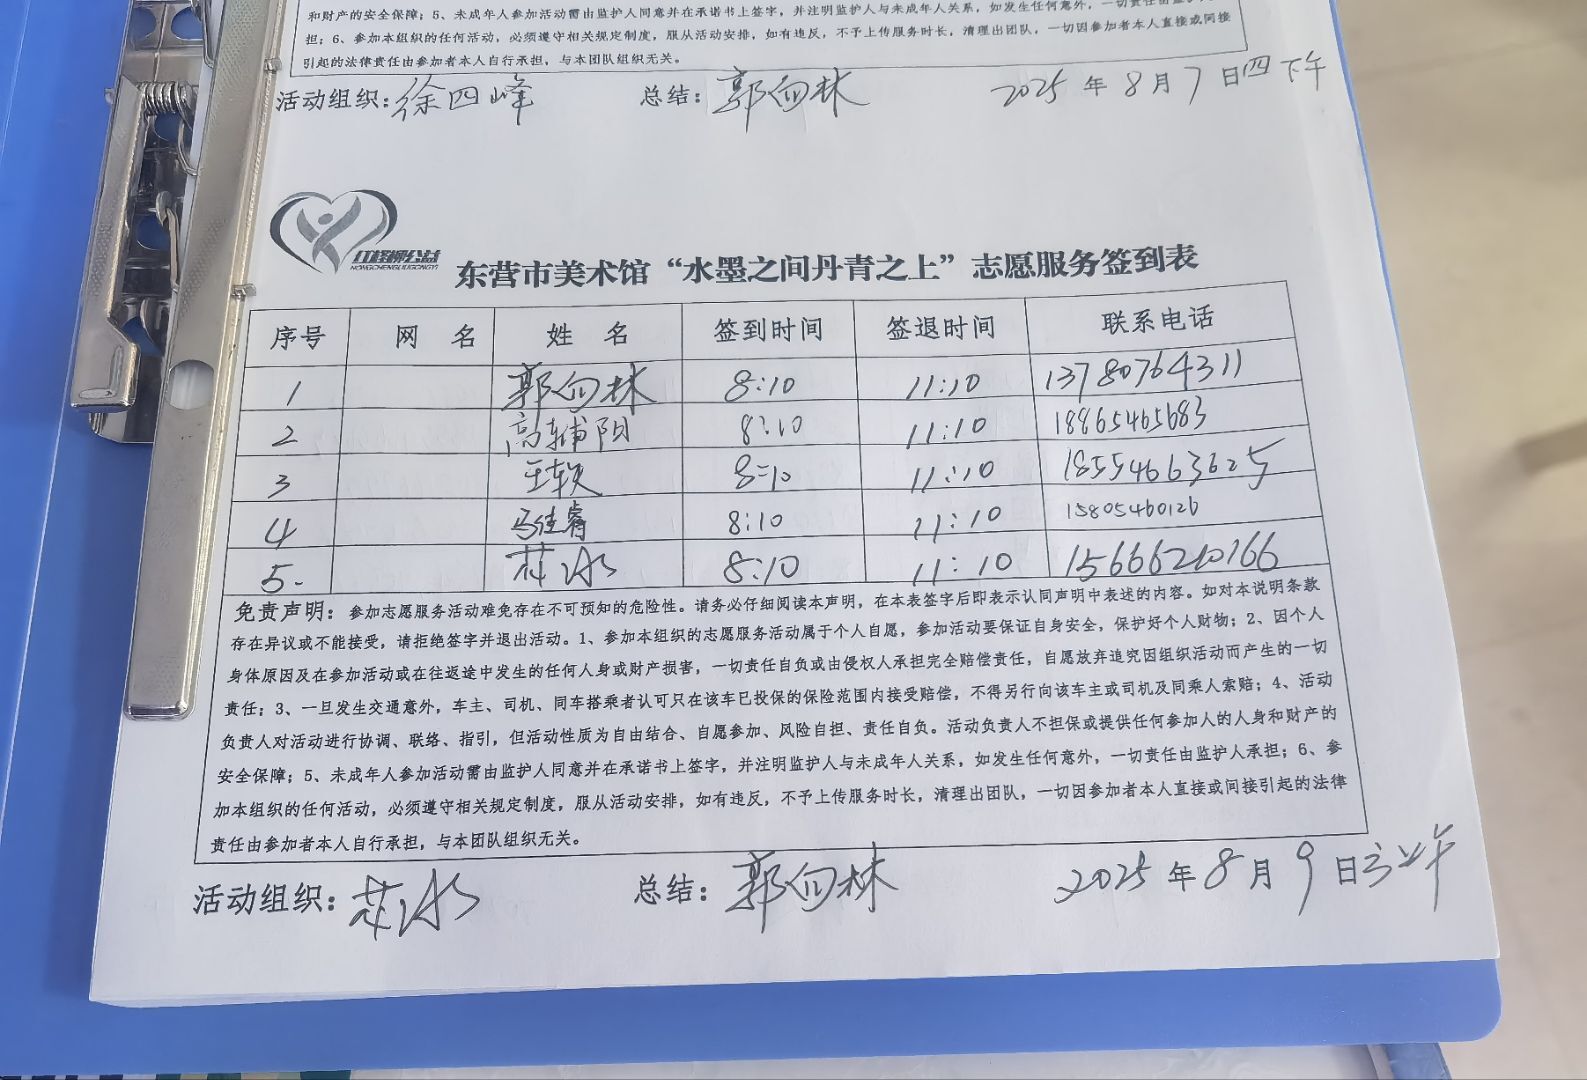 和财产的安全保障；5、未成年人参加活动需由监护人同意并在承诺书上签字，并注明监护人与未成年人关系，如发生任何意外，一切责任由监护人
担；6、参加本组织的任何活动，必须遵守相关规定制度，服从活动安排，如有违反，不予上传服务时长，清理出团队，一切因参加者本人直接或间接
引起的法律责任由参加者本人自行承担，与本团队组织无关。
活动组织：徐四峰 总结：郭向林 2025 年 8 月 7 日四下午
红柽柳公益
HONGCHENGLIUGONGYI
东营市美术馆“水墨之间丹青之上”志愿服务签到表
序号 网 名 姓 名 签到时间 签退时间 联系电话
1 郭向林 8:10 11:10 13780764311
2 高辅阳 8:10 11:10 18865465683
3 王轶 8:10 11:10 18554663625
4 马佳睿 8:10 11:10 15805460126
5. 8:10 11:10 15666210766
免责声明：参加志愿服务活动难免存在不可预知的危险性。请务必仔细阅读本声明，在本表签字后即表示认同声明中表述的内容。如对本说明条款
存在异议或不能接受，请拒绝签字并退出活动。1、参加本组织的志愿服务活动属于个人自愿，参加活动要保证自身安全，保护好个人财物；2、因个人
身体原因及在参加活动或在往返途中发生的任何人身或财产损害，一切责任自负或由侵权人承担完全赔偿责任，自愿放弃追究因组织活动而产生的一切
责任；3、一旦发生交通意外，车主、司机、同车搭乘者认可只在该车已投保的保险范围内接受赔偿，不得另行向该车主或司机及同乘人索赔；4、活动
负责人对活动进行协调、联络、指引，但活动性质为自由结合、自愿参加、风险自担、责任自负。活动负责人不担保或提供任何参加人的人身和财产的
安全保障；5、未成年人参加活动需由监护人同意并在承诺书上签字，并注明监护人与未成年人关系，如发生任何意外，一切责任由监护人承担；6、参
加本组织的任何活动，必须遵守相关规定制度，服从活动安排，如有违反，不予上传服务时长，清理出团队，一切因参加者本人直接或间接引起的法律
责任由参加者本人自行承担，与本团队组织无关。
活动组织： 总结：郭向林 2025 年 8 月 9 日六上午